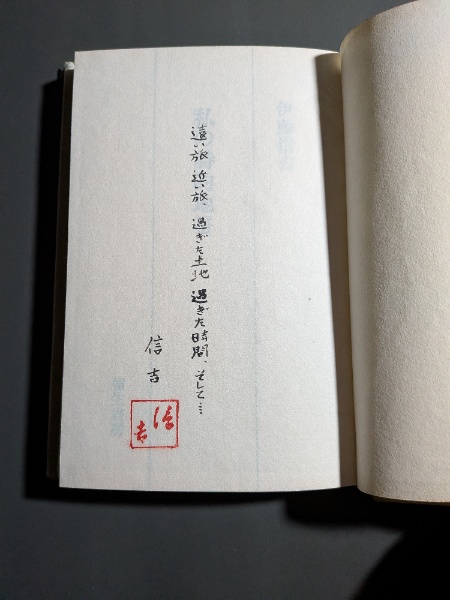 遠い旅 近い旅、過ぎた土地 過ぎた時間、そして…
信吉
信吉